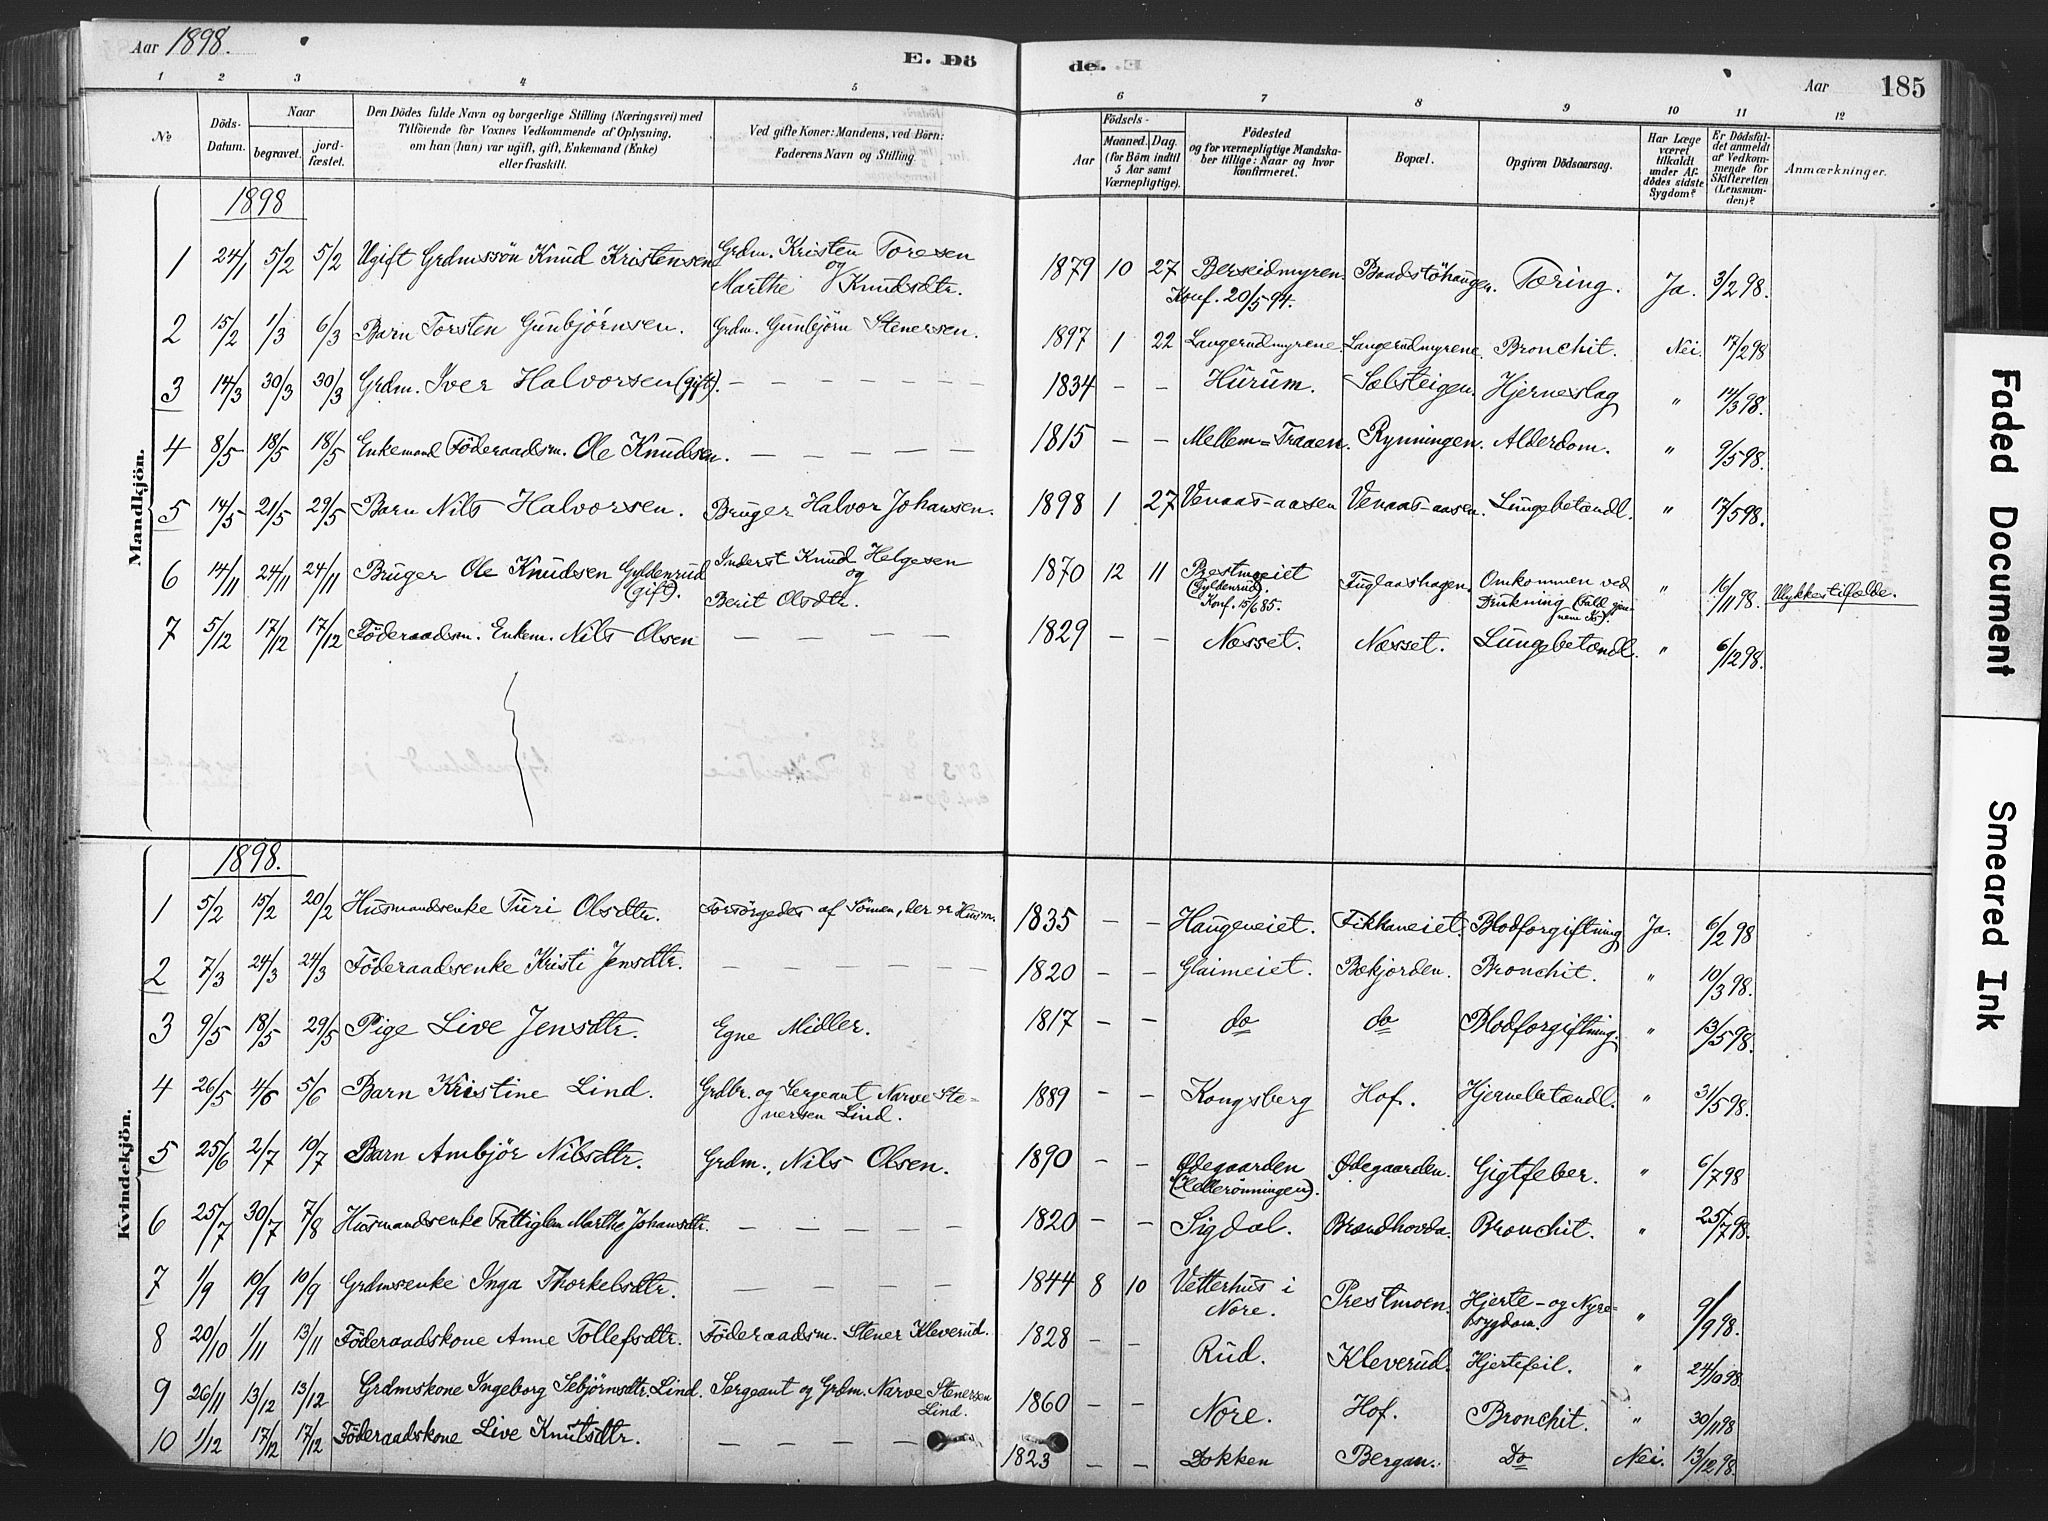 Aar 1898.
E. Dö
de.
Aar
185
1 2 3 4 5 6 7 8 9 10 11 12
No
Döds-Datum.
Naar
begravet.
jord-fæstet.
Den Dödes fulde Navn og borgerlige Stilling (Næringsvei) med
Tilföiende for Voxnes Vedkommende af Oplysning,
om han (hun) var ugift, gift, Enkemand (Enke)
eller fraskilt.
Ved gifte Koner: Mandens, ved Börn:
Faderens Navn og Stilling.
Födsels-
Aar
Maaned. Dag.
(for Börn indtil
5 Aar samt
Værnepligtige).
Födested
og for værnepligtige Mandska-
ber tillige: Naar og hvor
konfirmeret.
Bopæl.
Opgiven Dödsaarsag.
Har Læge
været
tilkaldt
under Af-
dödes sidste
Sygdom?
Er Dödsfal-
det anmeldt
af Vedkom-
mende for
Skifteretten
(Lensman-
den)?
Anmærkninger.
Mandkjön.
1898
1 24/1 5/2 5/2 Ugift Grdmssön Knud Kristensen Grdm. Kristen Toresen og Marthe Knudsdtr. 1879 10 27 Berseidmyren. Konf. 20/5 94. Baadstöhaugen. Tæring. Ja. 3/2 98.
2 15/2 1/3 6/3 Barn Torsten Gunbjörnsen. Grdm. Gunbjörn Stenersen. 1897 1 22 Langerudmyrene. Langerudmyrene. Bronchit. Nei. 17/2 98
3 14/3 30/3 30/3 Grdm. Iver Halvorsen (gift). — — — — — — 1834 — — Hurum. Sølsteigen. Hjerneslag " 14/3 98.
4 8/5 18/5 18/5 Enkemand Föderaadsm. Ole Knudsen. — — — — — 1815 — — Mellem=Traaen. Rynningen. Alderdom. " 9/5 98.
5 14/5 21/5 29/5 Barn Nils Halvorsen. Bruger Halvor Johansen. 1898 1 27 Venaas-aasen Venaas-aasen. Lungebetændl. " 17/5 98.
6 14/11 24/11 24/11 Bruger Ole Knudsen Gyldenrud (gift). Inderst Knud Helgesen og Berit Olsdtr. 1870 12 11 Prestmoeiet (Gyldenrud). Konf. 15/6 85. Fuglaashagen. Omkommen ved Drukning (Fald gjen-nem Is). " 16/11 98. Ulykkestilfælde.
7 5/12 17/12 17/12 Föderaadsm. Enkem. Nils Olsen — — — — 1829 — — Næsset. Næsset. Lungebetændl. " 6/12 98.
Kvindekjön.
1898.
1 5/2 15/2 20/2 Husmandsenke Turi Olsdtr. Forsörgedes af Sönnen, der er Husm. 1835 — — Haugeneiet. Fikkaneiet. Blodforgiftning Ja. 6/2 98
2 7/3 24/3 24/3 Föderaadsenke Kristi Jensdtr. — — — — — — 1820 — — Glaimeiet. Bekjorden. Bronchit. " 10/3 98.
3 9/5 18/5 29/5 Pige Live Jensdtr. Egne Midler. 1817 — — do do Blodforgiftning. " 13/5 98.
4 26/5 4/6 5/6 Barn Kristine Lind. Grdbr. og Sergeant Narve Ste-nersen Lind. 1889 — — Kongsberg Hof. Hjernebetændl. " 31/5 98.
5 25/6 2/7 10/7 Barn Ambjör Nilsdtr. Grdm. Nils Olsen. 1890 — — Ödegaarden (Hellerönningen). Ödegaarden. Gigtfeber. " 6/7 98
6 25/7 30/7 7/8 Husmandsenke Fattiglem Marthe Johansdtr. — — — — — 1820 — — Sigdal. Brandhovda. Bronchit. " 25/7 98.
7 1/9 10/9 10/9 Grdmsenke Inga Thorkelsdtr. — — — — 1844 8 10 Vetterhus i Nore. Prestmoen. Hjerte- og Nyre-sygdom. " 9/9 98.
8 20/10 1/11 13/11 Föderaadskone Anne Tollefsdtr. Föderaadsm. Stener Kleverud. 1828 — — Rud. Kleverud. Hjertefeil. " 24/10 98.
9 26/11 13/12 13/12 Grdmskone Ingeborg Sebjörnsdtr. Lind. Sergeant og Grdm. Narve Stenersen Lind. 1860 — — Nore. Hof. Bronchit. " 30/11 98
10 1/12 17/12 17/12 Föderaadskone Live Knutsdtr. — — — — — 1823 — — Dokken Bergan. Do Nei. 13/12 98.
Faded Document
Smeared Ink